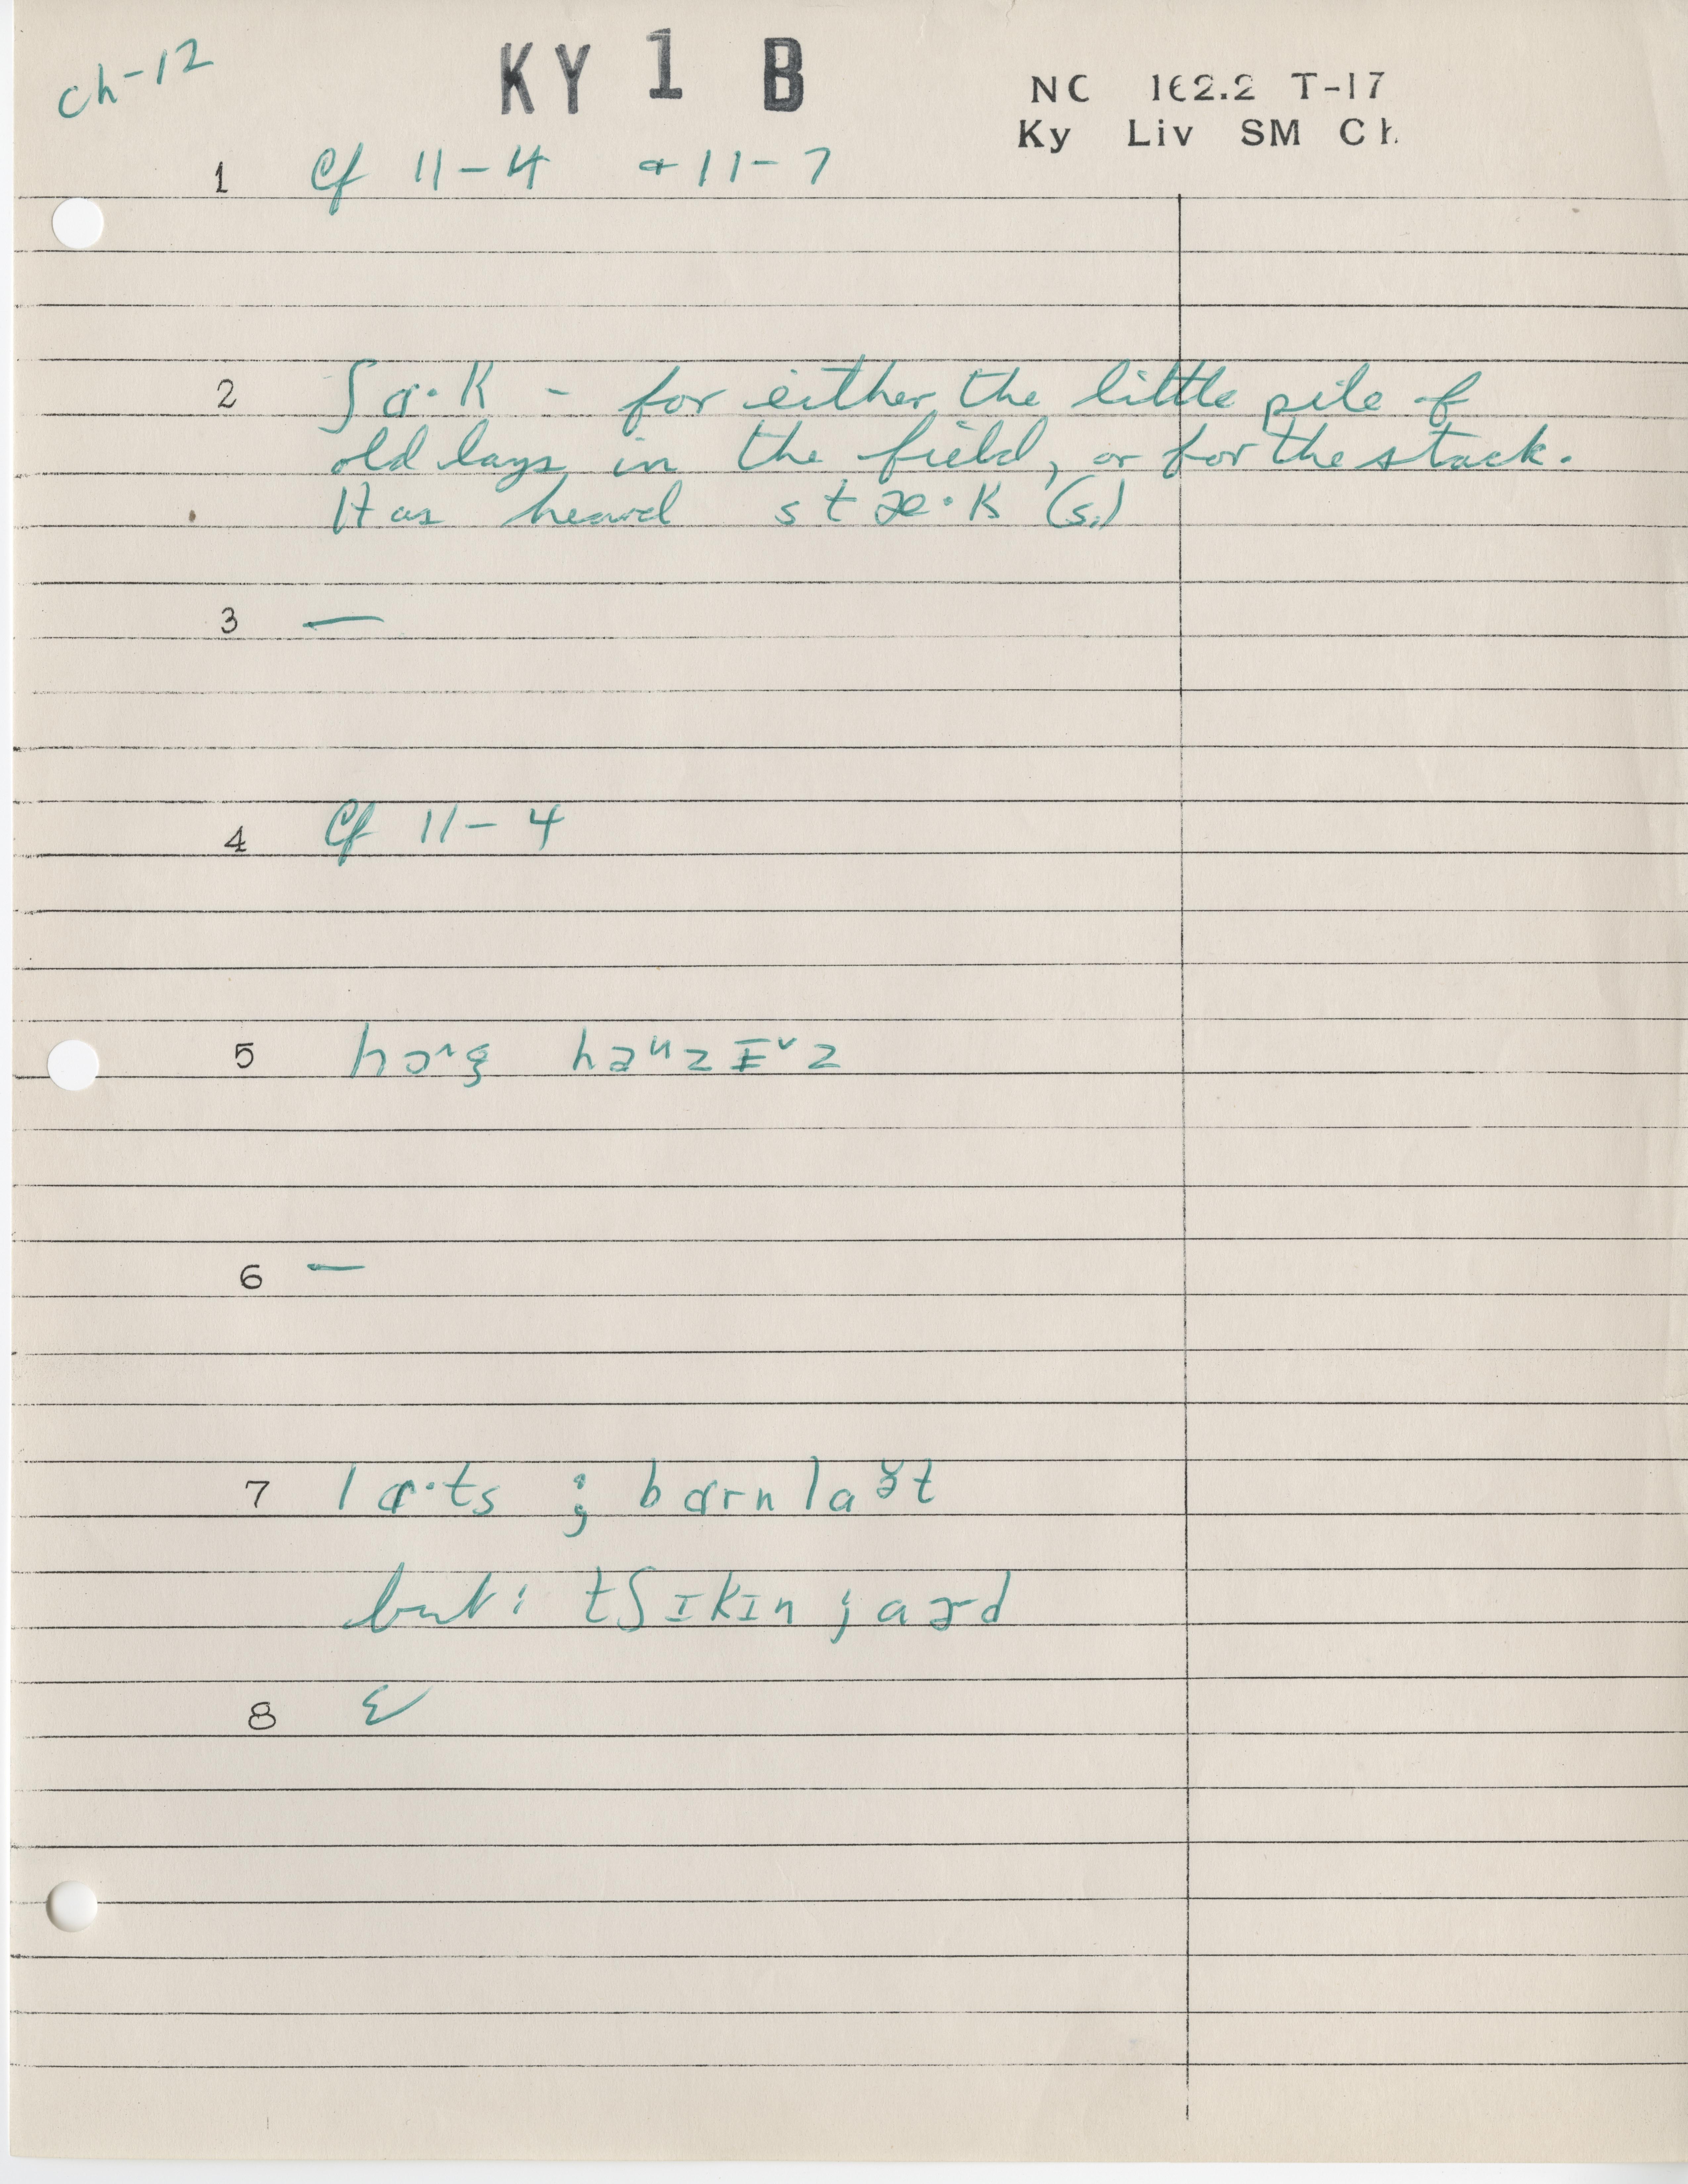 ch-12
KY 1 B
NC 162.2 T-17
Ky Liv SM Ch
1 Cf 11-4 + 11-7
2 ʃɑ·k - for either the little pile of
old lays in the field, or for the stack.
Has heard stæ·k (s.)
3 —
4 Cf 11-4
5 hɔ^g haᵘzɪ˅z
6 —
7 lɑ·ts ; bɑrnlaɤt
but: tʃɪkɪn jaɚd
8